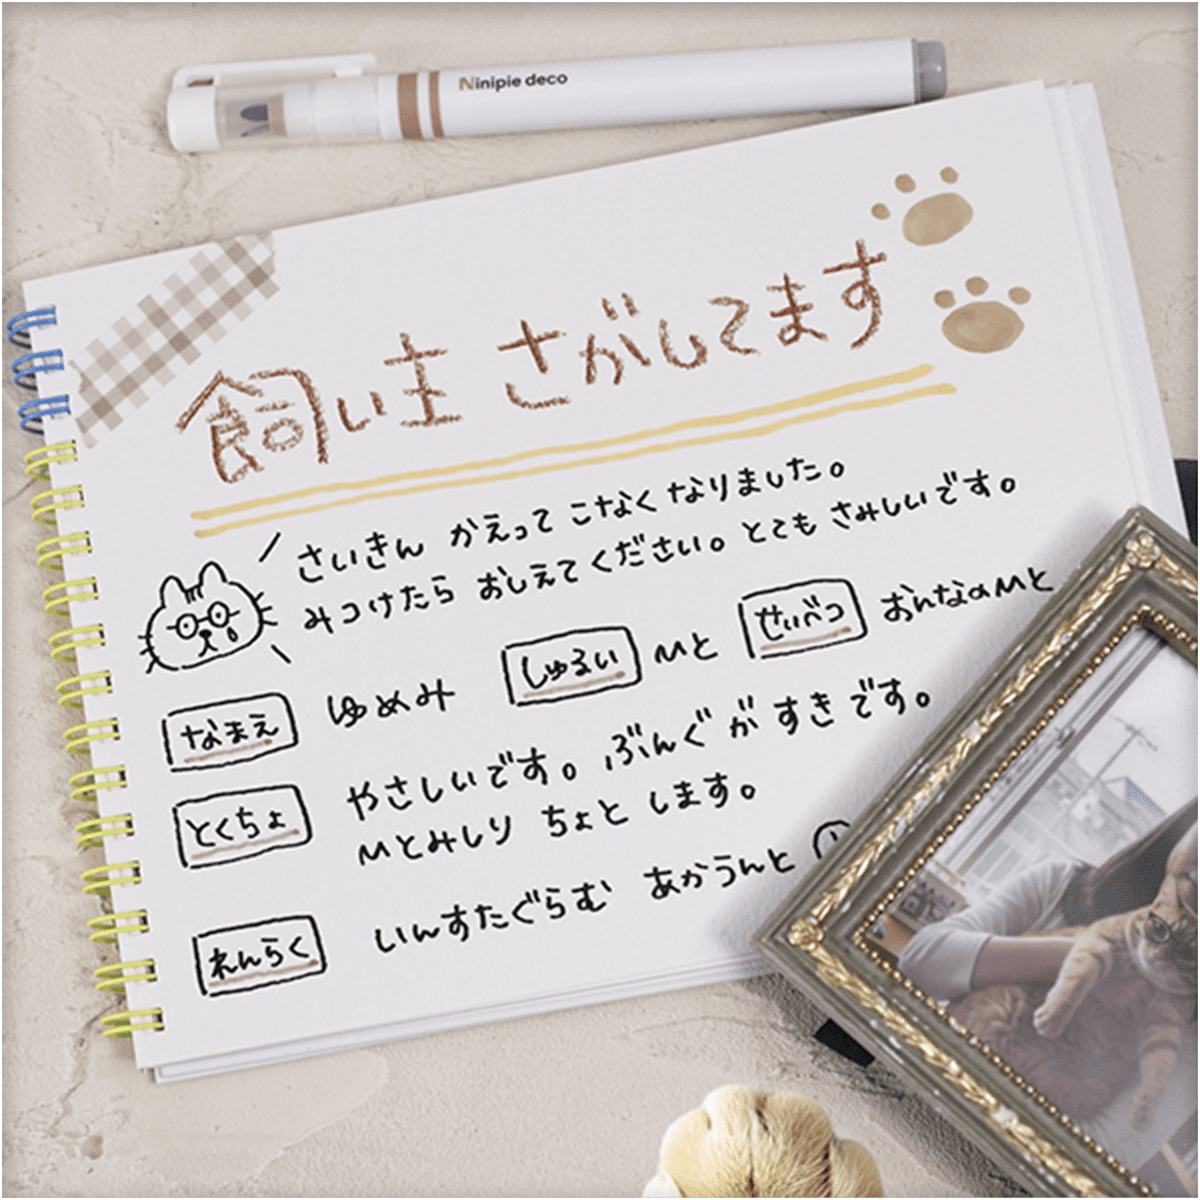 Ninipie deco
飼い主 さがしてます
さいきん かえって こなく なりました。
みつけたら おしえてください。とても さみしいです。
なまえ ゆめみ しゅるい Mと せいべつ おんなのMと
とくちょ やさしいです。ぶんぐ が すき です。
Mとみしり ちょと します。
れんらく いんすたぐらむ あかうんと